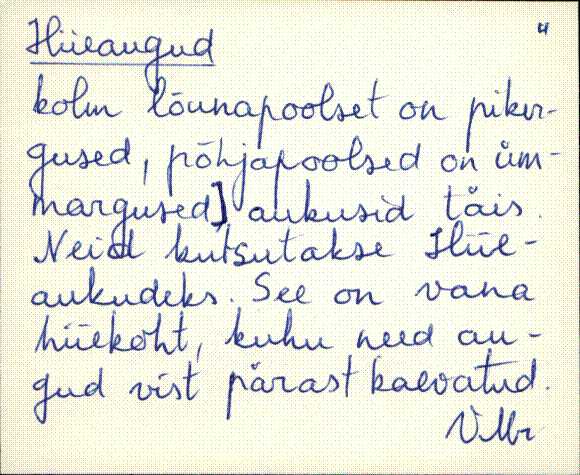 4
Hiieaugud
kolm lõunapoolset on piker-
gused, põhjapoolsed on üm-
margused] aukusid täis.
Neid kutsutakse Hiie-
aukudeks. See on vana
hiiekoht, kuhu need au-
gud vist pärast kaevatud.